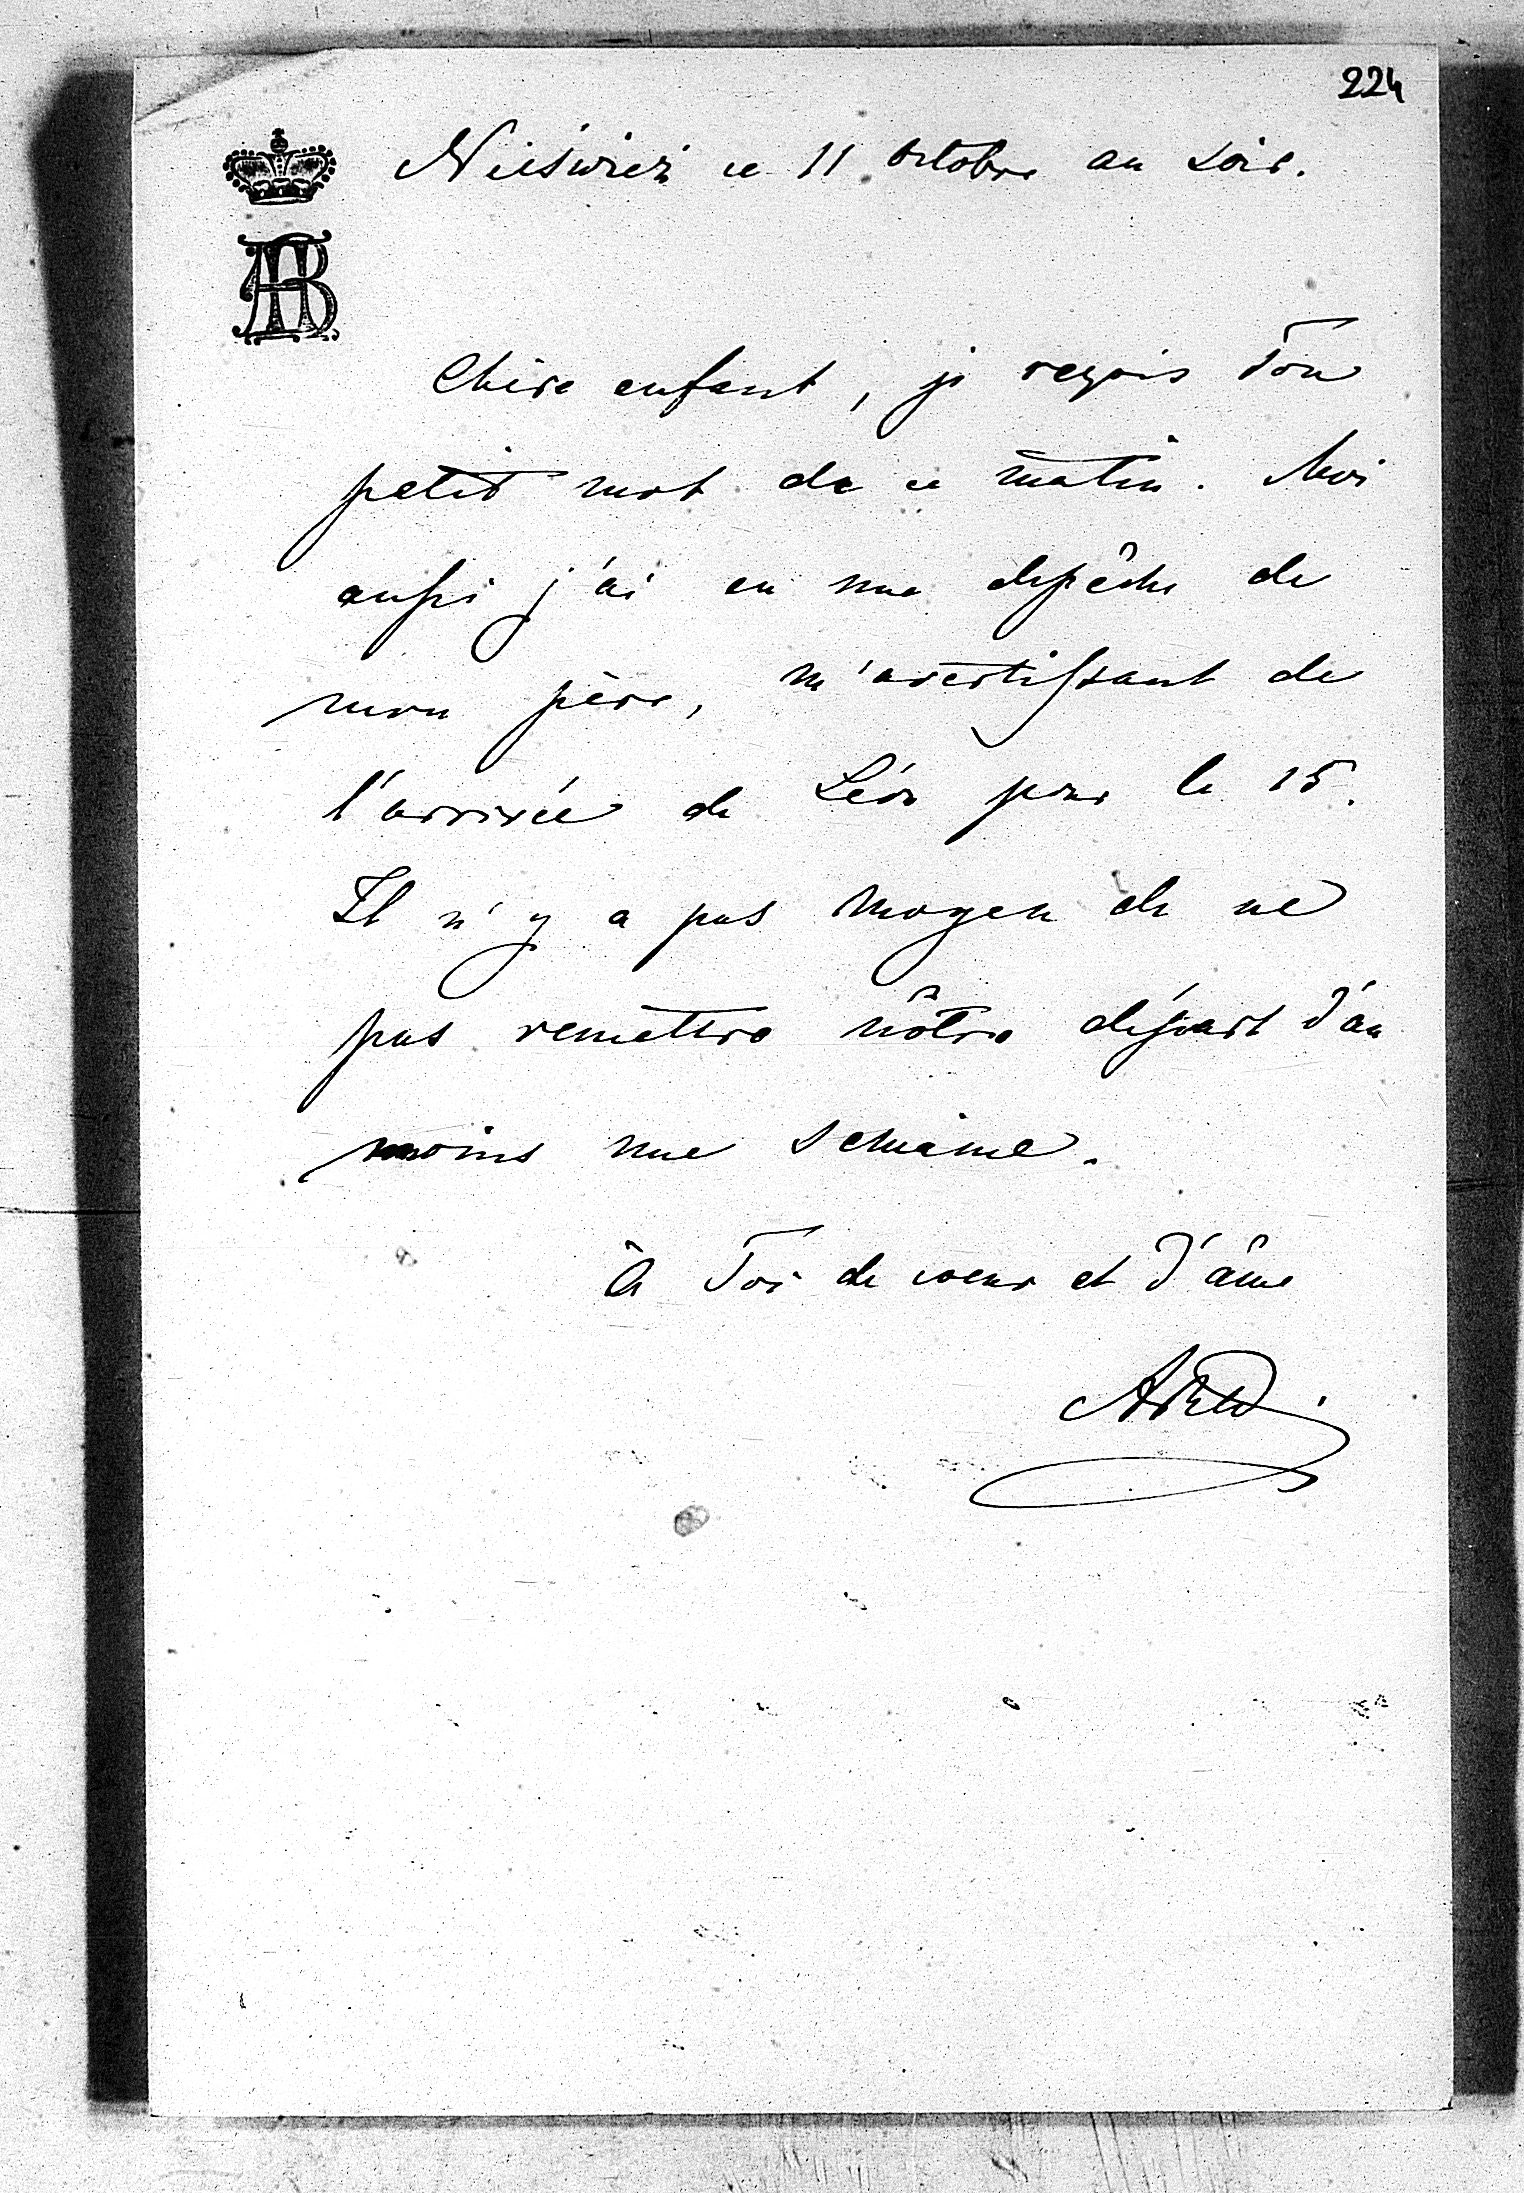 224
Nieśwież ce 11 octobre au soir.
AR
Chère enfant, je reçois Ton
petit mot de ce matin. Moi
aussi j'ai eu une dépêche de
mon père, m'avertissant de
l'arrivée de Léon pour le 15.
Il n'y a pas moyen de ne
pas remettre nôtre départ d'au
moins une semaine.
À Toi de coeur et d'âme